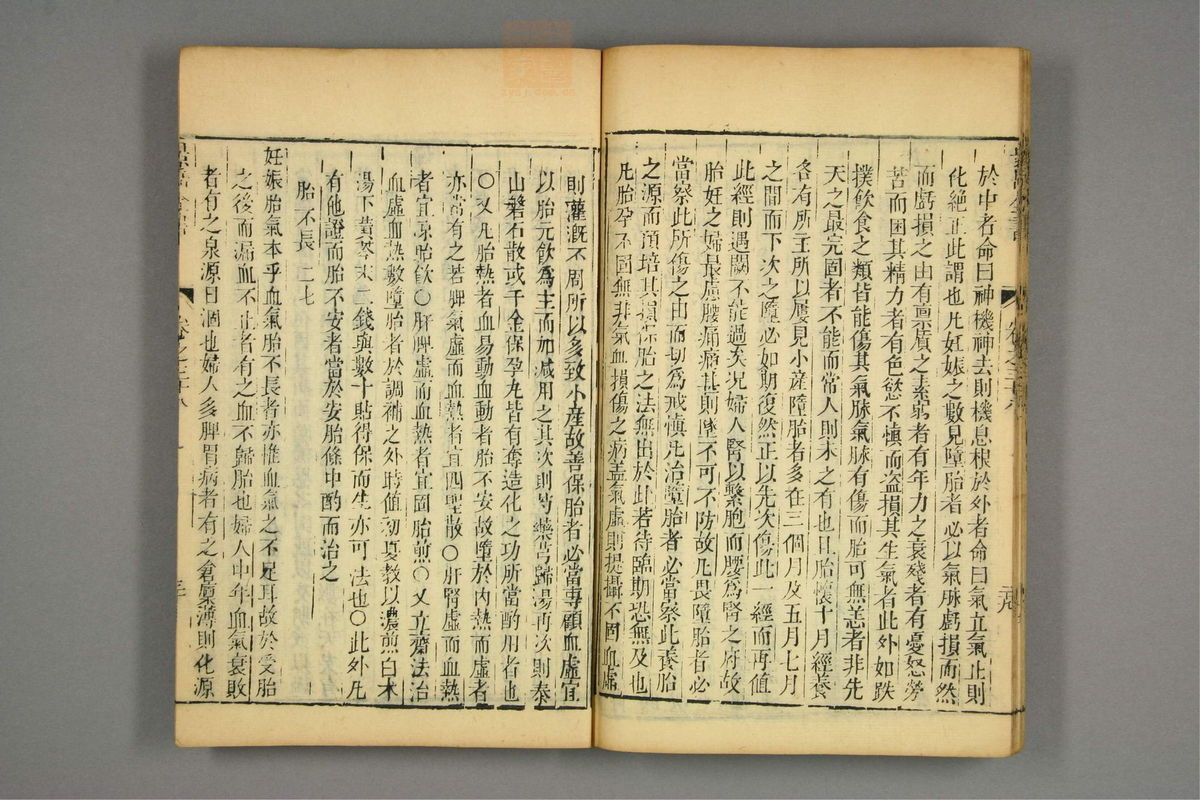 於中者命曰神機神去則機息根於外者命曰氣立氣止則
化絶正此謂也凡妊娠之數見墮胎者必以氣脉虧損而然
而虧損之由有禀質之素弱者有年力之衰殘者有憂怒勞
苦而困其精力者有色慾不慎而盗損其生氣者此外如跌
撲飲食之類皆能傷其氣脉氣脉有傷而胎可無恙者非先
天之最完固者不能而常人則未之有也且胎懷十月經養
各有所主所以屢見小產墮胎者多在三個月及五月七月
之間而下次之墮必如期復然正以先次傷此一經而再值
此經則遇闕不能過矣况婦人腎以繫胞而腰爲腎之府故
胎妊之婦最慮腰痛痛甚則墜不可不防故凡畏墮胎者必
當察此所傷之由而切爲戒慎凡治墮胎者必當察此養胎
之源而預培其損保胎之法無出於此若待臨期恐無及也
凡胎孕不固無非氣血損傷之病盖氣虚則提攝不固血虚
則灌溉不周所以多致小產故善保胎者必當專顧血虚宜
以胎元飲爲主而加减用之其次則芍藥芎歸湯再次則泰
山磐石散或千金保孕丸皆有奪造化之功所當酌用者也
○又凡胎熱者血易動血動者胎不安故墮於内熱而虚者
亦常有之若脾氣虚而血熱者宜四聖散○肝腎虚而血熱
者宜凉胎飲○肝脾虚而血熱者宜固胎煎○又立齋法治
血虚血熱數墮胎者於調補之外時值初夏教以濃煎白术
湯下黄芩末二錢與數十貼得保而生亦可法也○此外凡
有他證而胎不安者當於安胎條中酌而治之
胎不長 二七
妊娠胎氣本乎血氣胎不長者亦惟血氣之不足耳故於受胎
之後而漏血不止者有之血不歸胎也婦人中年血氣衰敗
者有之泉源日涸也婦人多脾胃病者有之倉廩薄則化源